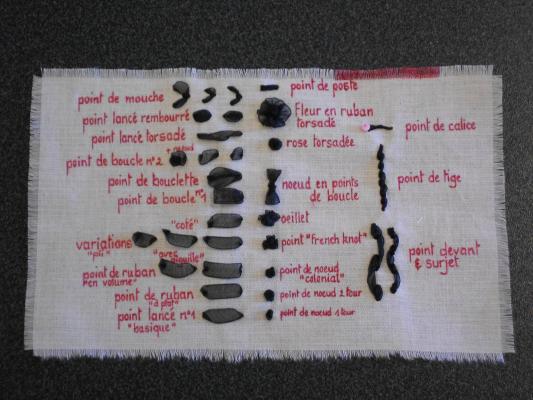 point de mouche
point lancé rembourré
point lancé torsadé
point de boucle n°2 + nœud
point de bouclette
point de boucle n°1
"coté"
variations
"pli" "avec aiguille"
point de ruban
"en volume"
point de ruban
"à plat"
point lancé n°1
"basique"
point de poste
Fleur en ruban
torsadé
rose torsadée
noeud en points
de boucle
oeillet
point "french knot"
point de noeud
"colonial"
point de noeud 2 tour
point de noeud 1 tour
point de calice
point de tige
point devant
& surjet